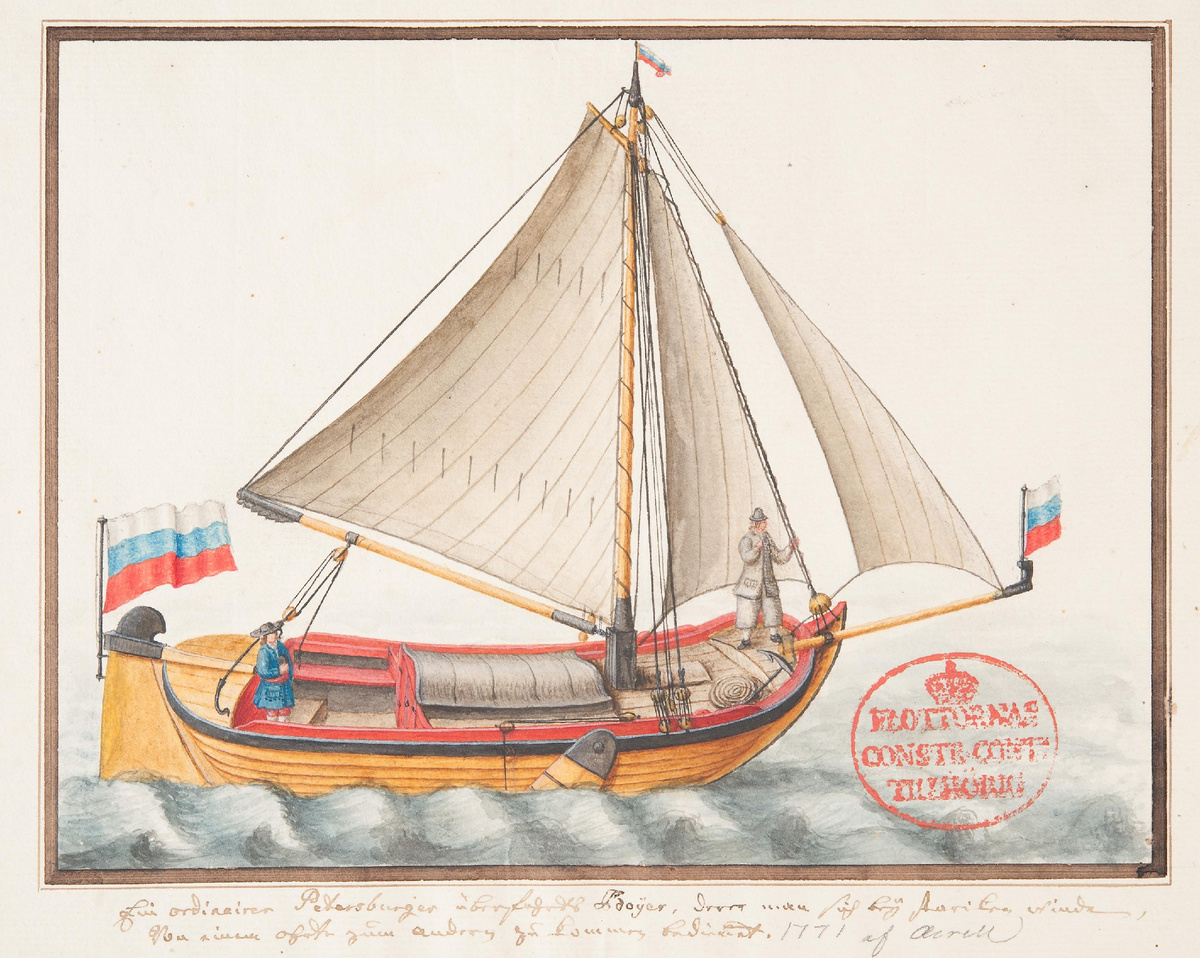 FLOTTORNAS
CONSTR. CONTR
TILLHÖRIG
Ein ordinairer Petersburger überfahrts Boyer, derer man sich beÿ starcken winden,
Von einem ohrte zum andern zu kommen bedienet. 1771 af Acrell